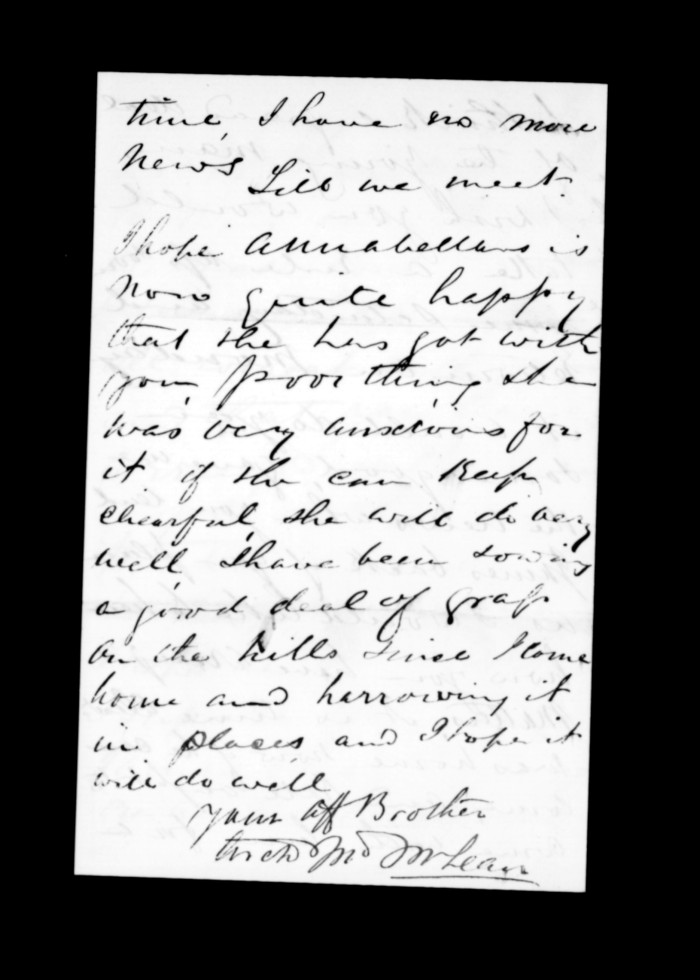 time, I have no more
News
Till we meet.
I hope Annabellans is
now quite happy
that she has got with
you, poor thing she
was very anxious for
it if she can Keep
chearful, she will do very
well, I have been sowing
a good deal of grass
on the hills since I came
home and harrowing it
in places and I hope it
will do well
your aff Brother
Archd Jno McLean